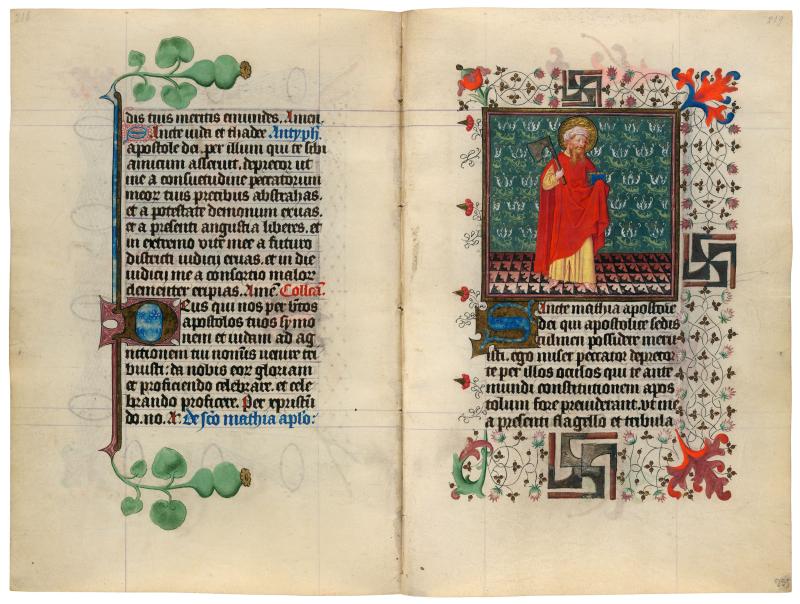 218
dis tuis meritis emundes. Amen.
Sancte iuda et thadee Antyph
apostole dei. per illum qui te sibi
amicum asseruit. deprecor ut
me a consuetudine peccatorum
meor tuis precibus abstrahas.
et a potestate demonum eruas.
et a presenti angustia liberes. et
in extremo vite mee a futuro
districti iudicij eruas. et in die
iudicij me a consortio malor
clementer eripias. Amē. Collcā.
Deus qui nos per btōs
apostolos tuos symo
nem et iudam ad ag
nitionem tui nomīs uenire tri
buisti: da nobis eor gloriam
et proficiendo celebrare. et cele
brando proficere. Per
do. no. De scō mathia aplō:
219
Sancte mathia apostole
dei qui apostolice sedis
culmen possidere meru
isti. ego miser peccator deprecor
te per illos oculos qui te ante
mundi constitutionem apos
tolum fore preuiderant. vt me
a presenti flagello et tribula